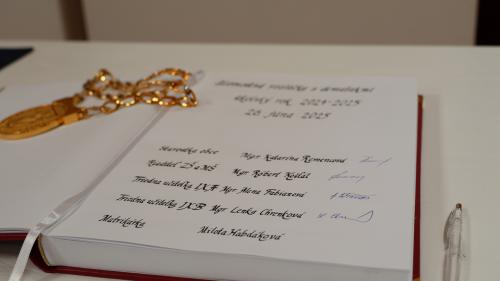 Slávnostná rozlúčka s deviatakmi
školský rok 2024-2025
26. júna 2025
Starostka obce Mgr. Katarína Remencová
Riaditeľ ZŠ a MŠ Mgr. Robert Kudláč
Triedna učiteľka IX.A Mgr. Alena Fabianová
Triedna učiteľka IX.B Mgr. Lenka Chrenková
Matrikárka Milota Habdáková